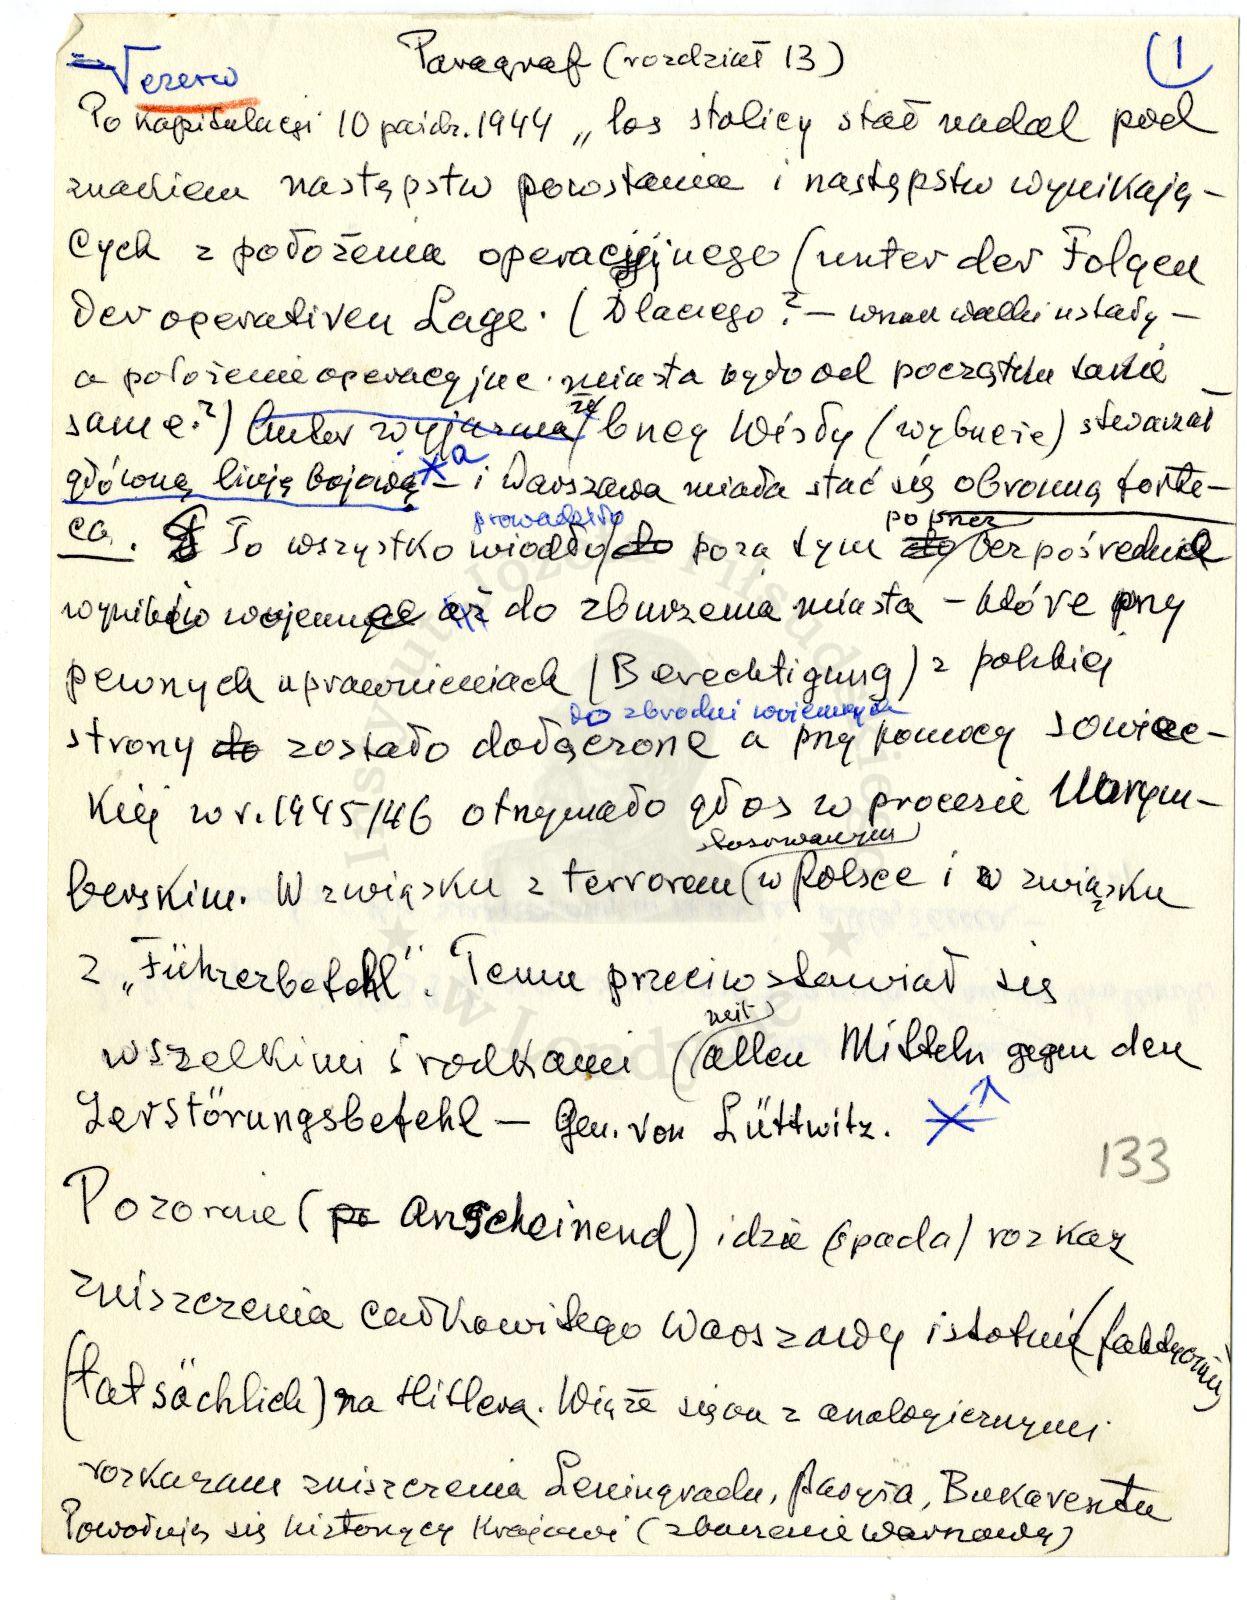 Paragraf (rozdział 13)
1
Po kapitulacji 10 paźdz. 1944 „los stolicy stał nadal pod
znakiem następstw powstania i następstw wynikają-
cych z położenia operacyjnego (unter der Folgen
der operativen Lage. (Dlaczego? – walki ustały –
a położenie operacyjne miasta było od początku takie
same?) Autor wyjaśnia że brzeg Wisły (wybrzeże) stwarzał
główną linię bojową *a – i Warszawa miała stać się obronną forte-
cą. To wszystko wiodło prowadziło do poza tym poprzez bezpośrednie
wyników wojennych aż do zburzenia miasta – które przy
pewnych uprawnieniach (Berechtigung) z polskiej
do zbrodni wojennych
strony do zostało dołączone a przy pomocy sowiec-
kiej w r. 1945/46 otrzymało głos w procesie Norym-
berskim. W związku z terrorem stosowanym w Polsce i w związku
z „Führerbefehl". Temu przeciwstawiał się
wszelkimi środkami (mit allen Mitteln gegen den
Zerstörungsbefehl – Gen. von Lüttwitz. *
133
Pozornie (po Anscheinend) idzie (spada) rozkaz
zniszczenia całkowitego Warszawy istotnie (faktycznie)
(tatsächlich) na Hitlera. Wiąże się on z analogicznymi
rozkazami zniszczenia Leningradu, Paryża, Bukaresztu
Powołują się historycy krajowi (zburzenie Warszawy)
Instytut Józefa Piłsudskiego
w Londynie